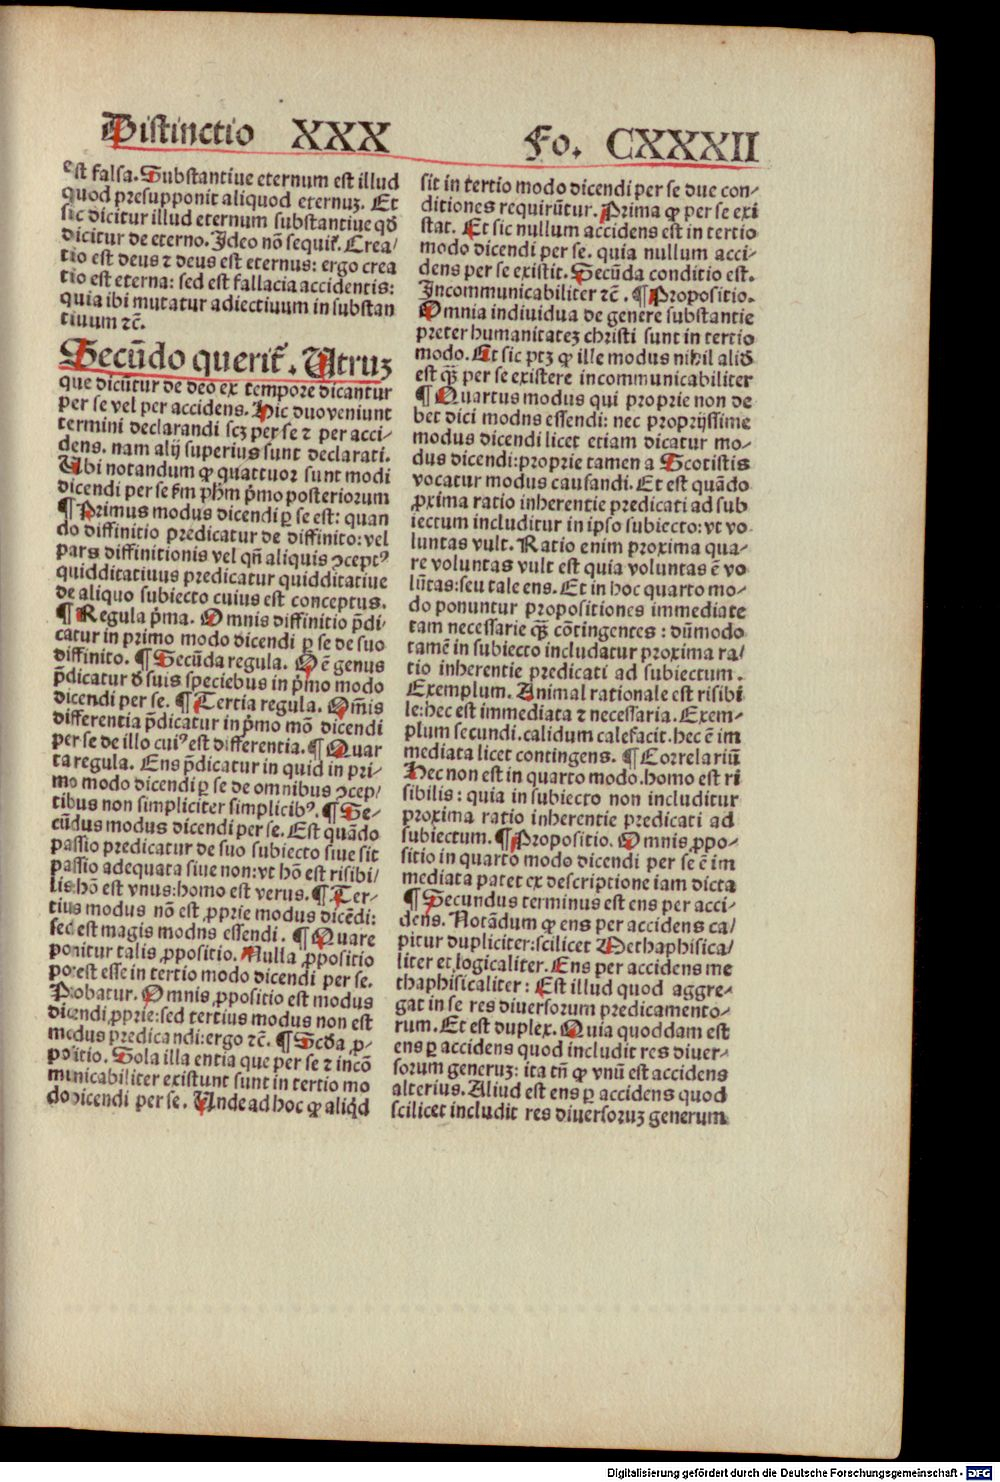 Distinctio XXX Fo. CXXXII
est falsa. Substantiue eternum est illud
quod presupponit aliquod eternuꝫ. Et
sic dicitur illud eternum substantiue qđ
dicitur de eterno. Ideo nō sequit᷑. Crea/
tio est deus ⁊ deus est eternus: ergo crea
tio est eterna: sed est fallacia accidentis:
quia ibi mutatur adiectiuum in substan
tiuum ⁊c̄.
Secūdo querit᷑. Utruꝫ
que dicūtur de deo ex tempore dicantur
per se vel per accidens. Hic duo veniunt
termini declarandi scꝫ per se ⁊ per acci/
dens. nam alij superius sunt declarati.
Ubi notandum ꝙ quattuor sunt modi
dicendi per se ẜm pħm p̄mo posteriorum
¶ Primus modus dicendi ꝑ se est: quan
do diffinitio predicatur de diffinito: vel
pars diffinitionis vel qn̄ aliquis ↄceptꝰ
quidditatiuus predicatur quidditatiue
de aliquo subiecto cuius est conceptus.
¶ Regula p̄ma. Omnis diffinitio p̄di/
catur in primo modo dicendi ꝑ se de suo
diffinito. ¶ Secūda regula. Oē genus
p̄dicatur đ suis speciebus in p̄mo modo
dicendi per se. ¶ Tertia regula. Om̄is
differentia p̄dicatur in p̄mo mō dicendi
per se de illo cuiꝰ est differentia. ¶ Quar
ta regula. Ens p̄dicatur in quid in pri/
mo modo dicendi ꝑ se de omnibus ↄcep/
tibus non simpliciter simplicibꝰ. ¶ Se/
cūdus modus dicendi per se. Est quādo
passio predicatur de suo subiecto siue sit
passio adequata siue non: vt hō est risibi/
lis: hō est vnus: homo est verus. ¶ Ter/
tius modus nō est ꝓprie modus dicēdi:
sed est magis modns essendi. ¶ Quare
ponitur talis ꝓpositio. Nulla ꝓpositio
potest esse in tertio modo dicendi per se.
Probatur. Omnis ꝓpositio est modus
dicendi ꝓprie: sed tertius modus non est
modus predicandi: ergo ⁊c̄. ¶ Scđa ꝓ/
positio. Sola illa entia que per se ⁊ incō
municabiliter existunt sunt in tertio mo
do dicendi per se. Unde ad hoc ꝙ aliqđ
sit in tertio modo dicendi per se due con/
ditiones requirūtur. Prima ꝙ per se exi
stat. Et sic nullum accidens est in tertio
modo dicendi per se. quia nullum acci/
dens per se existit. Secūda conditio est.
Incommunicabiliter ⁊c̄. ¶ Propositio.
Omnia indiuidua de genere substantie
preter humanitateꝫ christi sunt in tertio
modo. Et sic ptꝫ ꝙ ille modus nihil aliđ
est qꝫ̄ per se existere incommunicabiliter
¶ Quartus modus qui proprie non de
bet dici modns essendi: nec proprijssime
modus dicendi licet etiam dicatur mo/
dus dicendi: proprie tamen a Scotistis
vocatur modus causandi. Et est quādo
ꝓxima ratio inherentie predicati ad sub
iectum includitur in ipso subiecto: vt vo
luntas vult. Ratio enim proxima qua/
re voluntas vult est quia voluntas ē vo
lūtas: seu tale ens. Et in hoc quarto mo/
do ponuntur propositiones immediate
tam necessarie qꝫ̄ cōtingentes: dūmodo
tamē in subiecto includatur proxima ra/
tio inherentie predicati ad subiectum.
Exemplum. Animal rationale est risibi
le: hec est immediata ⁊ necessaria. Exem/
plum secundi. calidum calefacit. hec ē im
mediata licet contingens. ¶ Correlariū
Hec non est in quarto modo. homo est ri
sibilis: quia in subiecto non includitur
proxima ratio inherentie predicati ad
subiectum. ¶ Propositio. Omnis ꝓpo/
sitio in quarto modo dicendi per se ē im
mediata patet ex descriptione iam dicta
¶ Secundus terminus est ens per acci/
dens. Notādum ꝙ ens per accidens ca/
pitur dupliciter: scilicet Methaphisica/
liter et logicaliter. Ens per accidens me
thaphisicaliter: Est illud quod aggre/
gat in se res diuersorum predicamento/
rum. Et est duplex. Quia quoddam est
ens ꝑ accidens quod includit res diuer/
sorum generuꝫ: ita tn̄ ꝙ vnū est accidens
alterius. Aliud est ens ꝑ accidens quod
scilicet includit res diuersoruꝫ generum
Digitalisierung gefördert durch die Deutsche Forschungsgemeinschaft - DFG